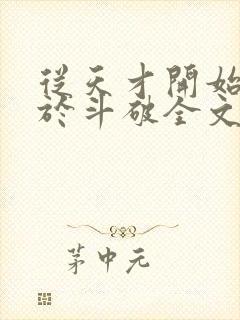 從天才開始
於斗破全文
茅中元